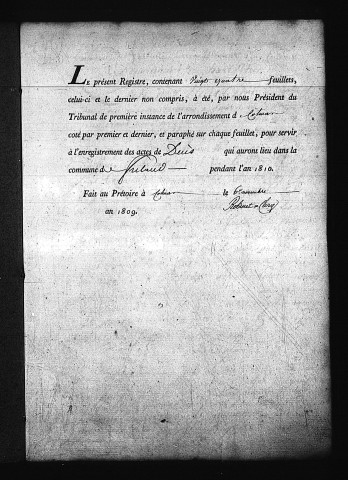 LE présent Registre, contenant Vingt quatre feuillets,
celui-ci et le dernier non compris, à été, par nous Président du
Tribunal de première instance de l'arrondissement d Colmar
coté par premier et dernier, et paraphé sur chaque feuillet, pour servir
à l'enregistrement des actes de Décès qui auront lieu dans la
commune de pendant l'an 1810.
Fait au Prétoire à Colmar le 6 novembre
an 1809.